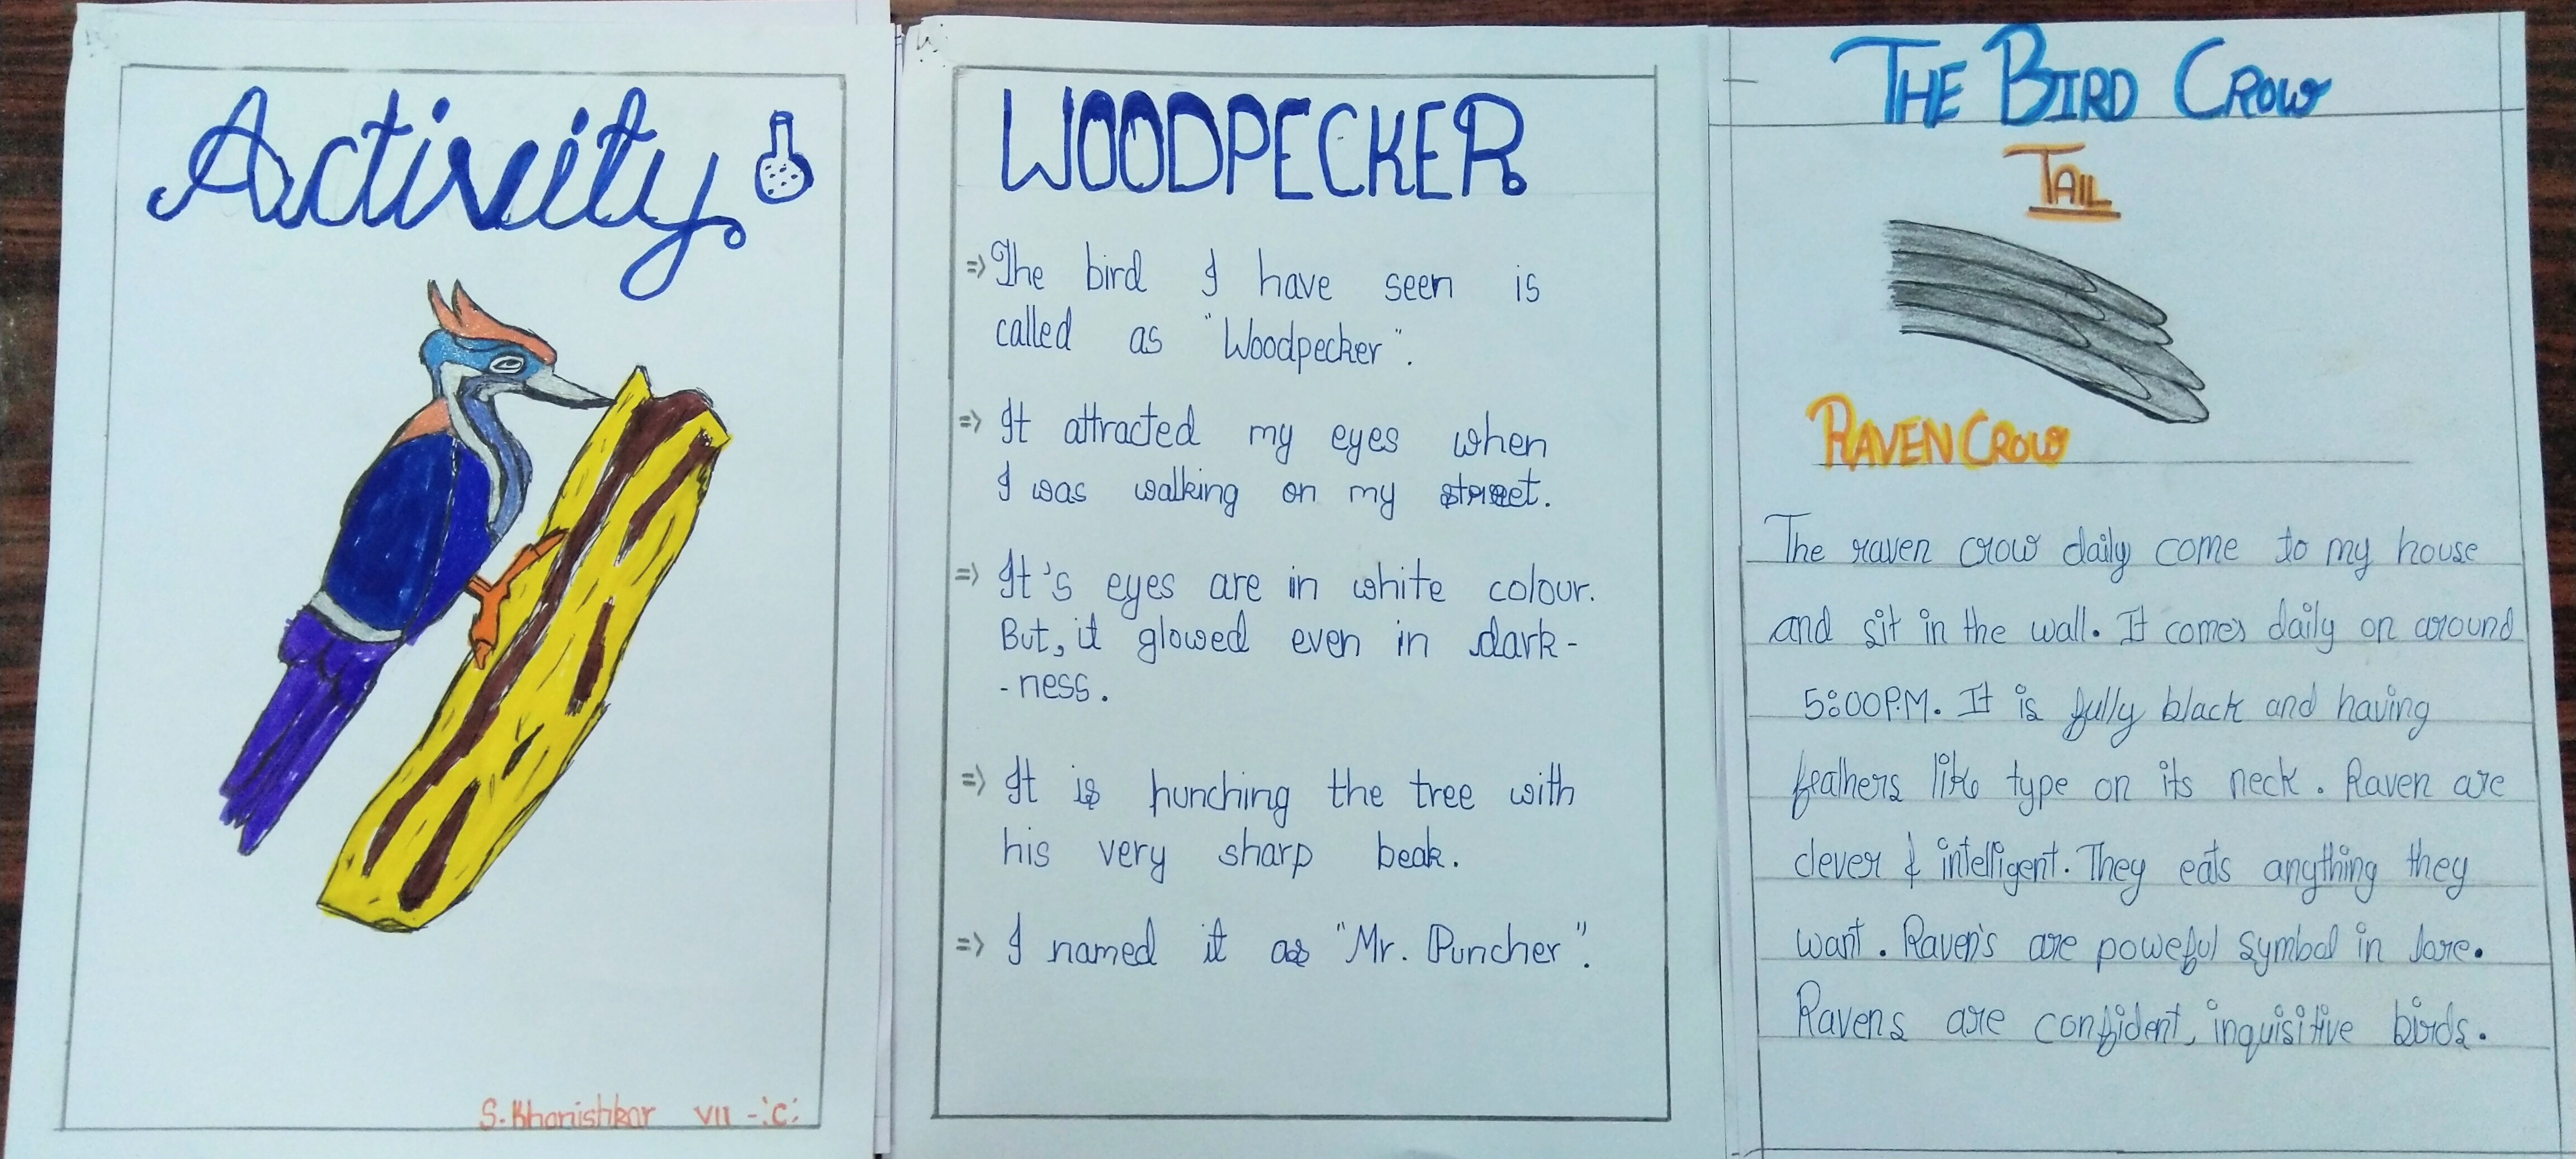 Activity
S. Khanishkar VII - 'C'
WOODPECKER
=> The bird I have seen is
called as "Woodpecker".
=> It attracted my eyes when
I was walking on my street.
=> It's eyes are in white colour.
But, it glowed even in dark-
-ness.
=> It is hunching the tree with
his very sharp beak.
=> I named it as "Mr. Puncher".
THE BIRD CROW
TAIL
RAVEN CROW
The raven crow daily come to my house
and sit in the wall. It comes daily on around
5:00P.M. It is fully black and having
feathers like type on its neck. Raven are
clever & intelligent. They eats anything they
want. Raven's are poweful symbol in lore.
Ravens are confident, inquisitive birds.